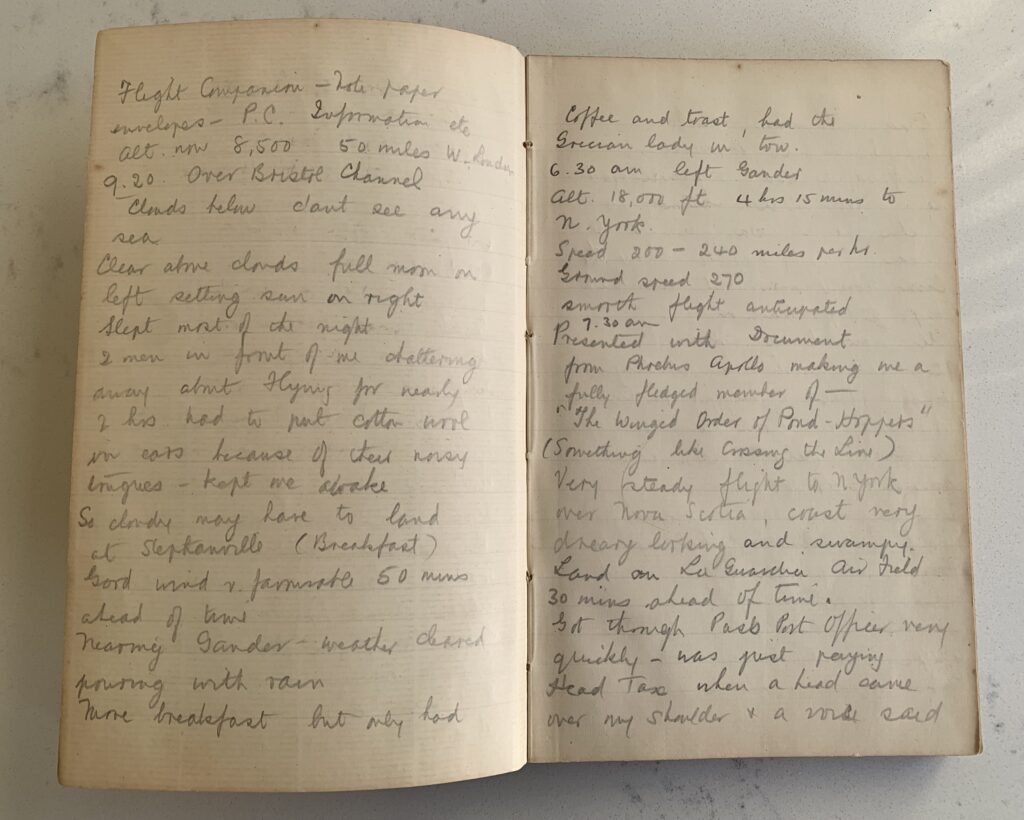 Flight Companion – Note paper
envelopes – P.C. Information etc
Alt. now 8,500 50 miles W. London
9.20 Over Bristol Channel
Clouds below dont see any
sea
Clear above clouds full moon on
left setting sun on right
Slept most of the night
2 men in front of me chattering
away about Flying for nearly
2 hrs had to put cotton wool
in ears because of their noisy
tongues – kept me awake
So cloudy may have to land
at Stephanville (Breakfast)
Good wind & favourable 50 mins
ahead of time
Nearing Gander – weather cleared
pouring with rain
More breakfast but only had
Coffee and toast, had the
Grecian lady in tow.
6.30 am left Gander
Alt. 18,000 ft 4 hrs 15 mins to
N. York.
Speed 200 – 240 miles per hr.
Ground speed 270
smooth flight anticipated
7.30 am
Presented with Document
from Phoebus Apollo making me a
fully fledged member of —
"The Winged Order of Pond-Hoppers"
(Something like Crossing the Line)
Very steady flight to N York
over Nova Scotia, coast very
dreary looking and swampy.
Land on La Guardia Air Field
30 mins ahead of time.
Got through Pass Port Officer very
quickly – was just paying
Head Tax when a head came
over my shoulder & a voice said